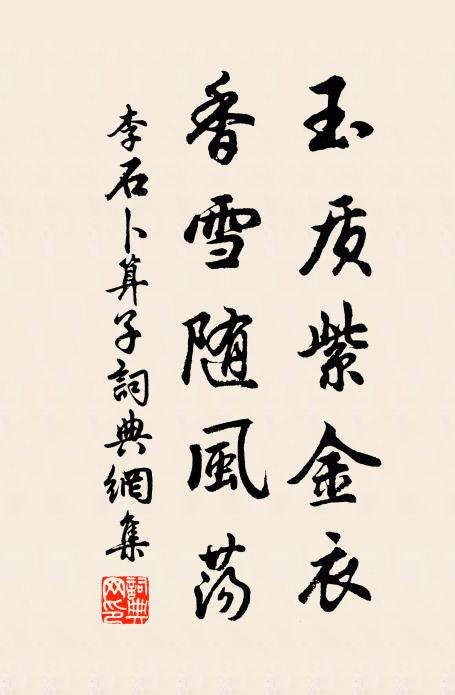 玉质紫金衣
香雪随風荡
李石卜算子詞典網集
詞典網印